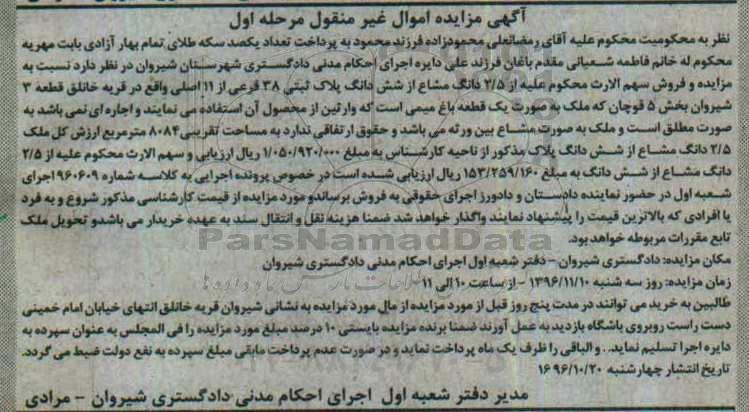 آگهی مزایده اموال غیر منقول مرحله اول
نظر به محکومیت محکوم علیه آقای رمضانعلی محمودزاده فرزند محمود به پرداخت تعداد یکصد سکه طلای تمام بهار آزادی بابت مهریه
محکوم له خانم فاطمه شعبانی مقدم باغان فرزند علی دایره اجرای احکام مدنی دادگستری شهرستان شیروان در نظر دارد نسبت به
مزایده و فروش سهم الارث محکوم علیه از ۲/۵ دانگ مشاع از شش دانگ پلاک ثبتی ۳۸ فرعی از ۱۱ اصلی واقع در قریه خانلق قطعه ۳
شیروان بخش ۵ قوچان که ملک به صورت یک قطعه باغ میمی است که وارثین از محصول آن استفاده می نمایند و اجاره ای نمی باشد به
صورت مطلق است و ملک به صورت مشاع بین ورثه می باشد و حقوق ارتفاقی ندارد به مساحت تقریبی ۸۰۸۴ مترمربع ارزش کل ملک
۲/۵ دانگ مشاع از شش دانگ پلاک مذکور از ناحیه کارشناس به مبلغ ۱/۰۵۰/۹۲۰/۰۰۰ ریال ارزیابی و سهم الارث محکوم علیه از ۲/۵
دانگ مشاع از شش دانگ به مبلغ ۱۵۳/۲۵۹/۱۶۰ ریال ارزیابی شده است در خصوص پرونده اجرایی به کلاسه شماره ۹۶۰۶۰۹ اجرای
شعبه اول در حضور نماینده دادستان و دادورز اجرای حقوقی به فروش برساندو مورد مزایده از قیمت کارشناسی مذکور شروع و به فرد
یا افرادی که بالاترین قیمت را پیشنهاد نمایند واگذار خواهد شد ضمنا هزینه نقل و انتقال سند به عهده خریدار می باشدو تحویل ملک
تابع مقررات مربوطه خواهد بود.
ParsNamadData
مکان مزایده: دادگستری شیروان - دفتر شعبه اول اجرای احکام مدنی دادگستری شیروان
زمان مزایده: روز سه شنبه ۱۳۹۶/۱۱/۱۰ - از ساعت ۱۰ الی ۱۱
طالبین به خرید می توانند در مدت پنج روز قبل از مورد مزایده از مال مورد مزایده به نشانی شیروان قریه خانلق انتهای خیابان امام خمینی
دست راست روبروی باشگاه بازدید به عمل آورند ضمنا برنده مزایده بایستی ۱۰ درصد مبلغ مورد مزایده را فی المجلس به عنوان سپرده به
دایره اجرا تسلیم نماید. . و الباقی را ظرف یک ماه پرداخت نماید و در صورت عدم پرداخت مابقی مبلغ سپرده به نفع دولت ضبط می گردد.
تاریخ انتشار چهارشنبه ۹۶/۱۰/۲۰ ۱۶
مدیر دفتر شعبه اول اجرای احکام مدنی دادگستری شیروان - مرادی